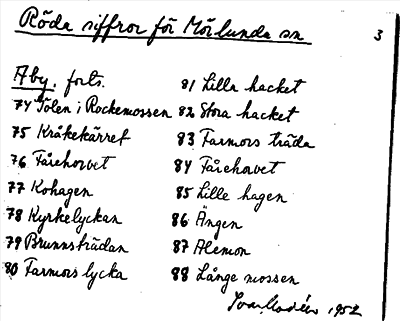 Röda siffror för Mörlunda sn
3
Åby. forts.
74 Tolen i Rockemossen
75 Kråkekärret
76 Fårehorvet
77 Kohagen
78 Kyrkelyckan
79 Brunnsträdan
80 Farmors lycka
81 Lilla hacket
82 Stora hacket
83 Farmors träda
84 Fårehorvet
85 Lille hagen
86 Ängen
87 Alemon
88 Långe mossen
1952